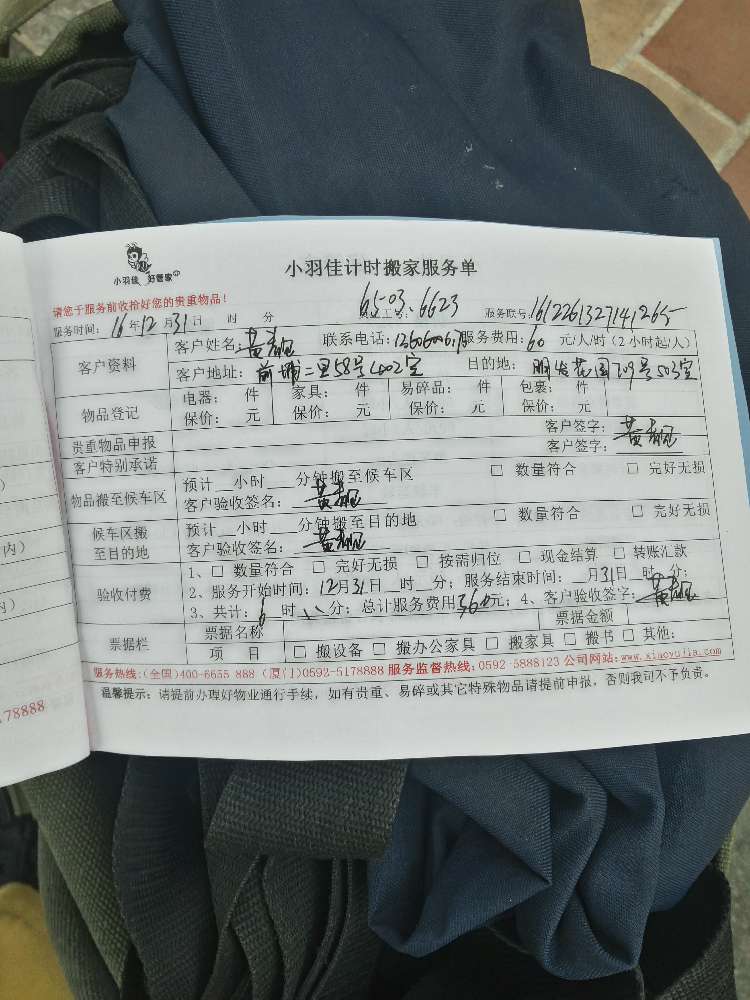 小羽佳 好管家
小羽佳计时搬家服务单
请您于服务前收拾好您的贵重物品!
服务时间: 16年12月31日 时 分 工号: 6503.6623 服务联号:
客户资料
客户姓名: 联系电话: 服务费用: 60 元/人/时 (2小时起/人)
客户地址: 前埔二里58号 目的地: 明发花园 号503室
物品登记
电器: 件 家具: 件 易碎品: 件 包裹: 件
保价: 元 保价: 元 保价: 元 保价: 元
贵重物品申报 客户签字:
客户特别承诺 客户签字:
物品搬至候车区
预计__小时__分钟搬至候车区 □ 数量符合 □ 完好无损
客户验收签名:
候车区搬
至目的地
预计__小时__分钟搬至目的地 □ 数量符合 □ 完好无损
客户验收签名:
验收付费
1、□ 数量符合 □ 完好无损 □ 按需归位 □ 现金结算 □ 转账汇款
2、服务开始时间: 12月31日__时__分; 服务结束时间: __月31日__时__分;
3、共计: 6时 分; 总计服务费用360元; 4、客户验收签字:
票据栏
票据名称 票据金额
项 目 □ 搬设备 □ 搬办公家具 □ 搬家具 □ 搬书 □ 其他:
服务热线:(全国)400-6655 888 (厦门)0592-5178888 服务监督热线:0592 5888123 公司网站:www.xiaoyujia.com
温馨提示: 请提前办理好物业通行手续, 如有贵重、易碎或其它特殊物品请提前申报, 否则我司不予负责。
内)
178888